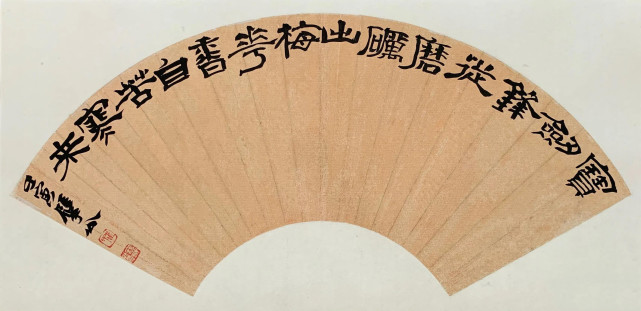 寶劍鋒從磨礪出梅花香自苦寒來